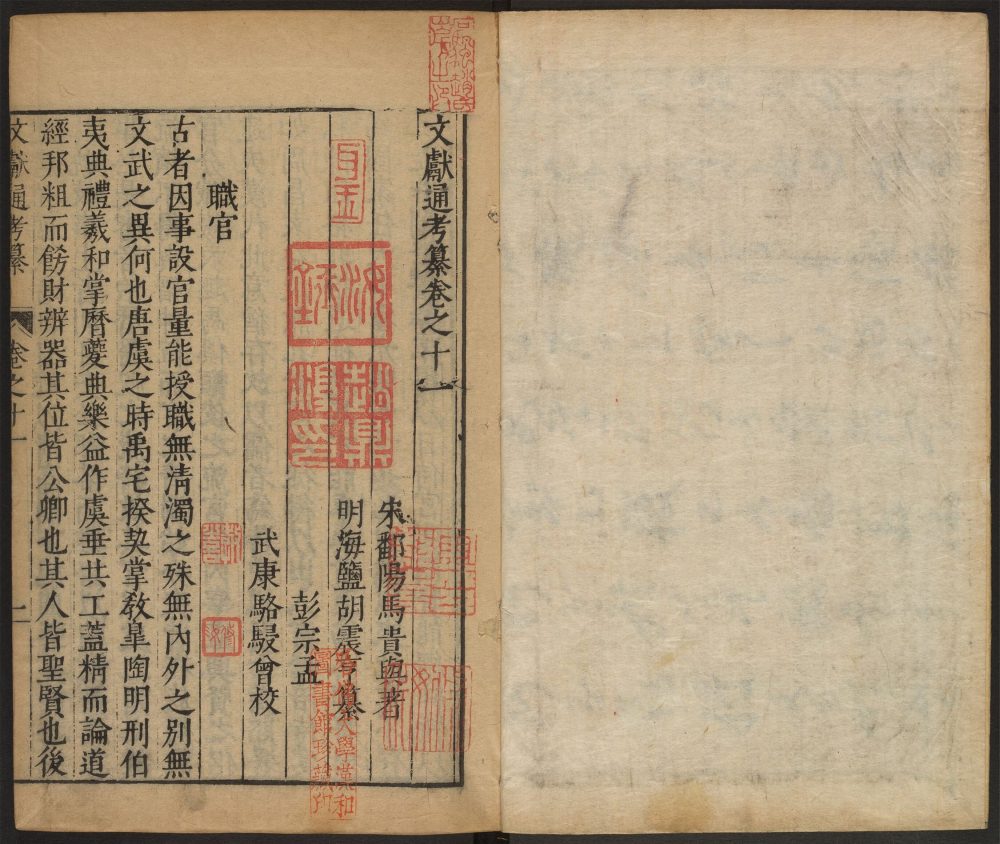 文獻通考纂卷之十一
宋鄱陽馬貴與著
明海鹽胡震亨纂
彭宗孟
武康駱駸曾校
職官
古者因事設官量能授職無淸濁之殊無內外之別無
文武之異何也唐虞之時禹宅揆契掌敎臯陶明刑伯
夷典禮羲和掌曆夔典樂益作虞垂共工蓋精而論道
經邦粗而飭財辨器其位皆公卿也其人皆聖賢也後
文獻通考纂
卷之十一
一
大學漢和
圖書館珍藏印